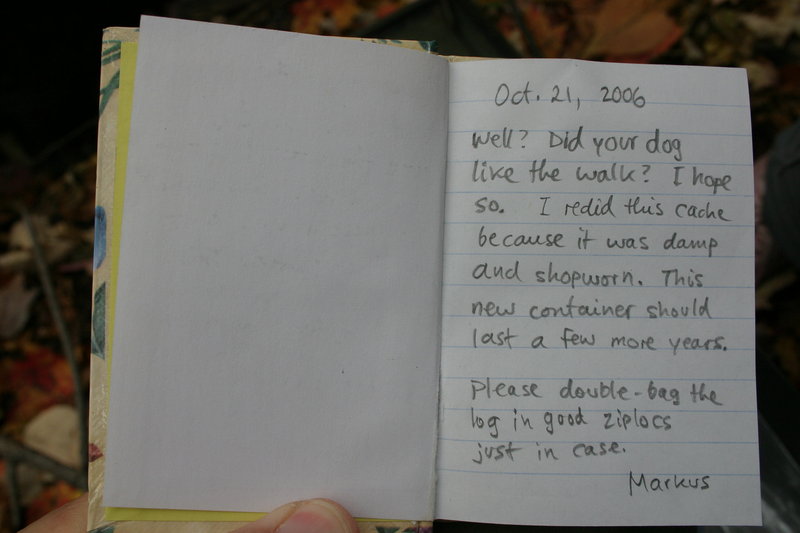 Oct. 21, 2006
Well? Did your dog
like the walk? I hope
so. I redid this cache
because it was damp
and shopworn. This
new container should
last a few more years.
Please double-bag the
log in good ziplocs
just in case.
Markus